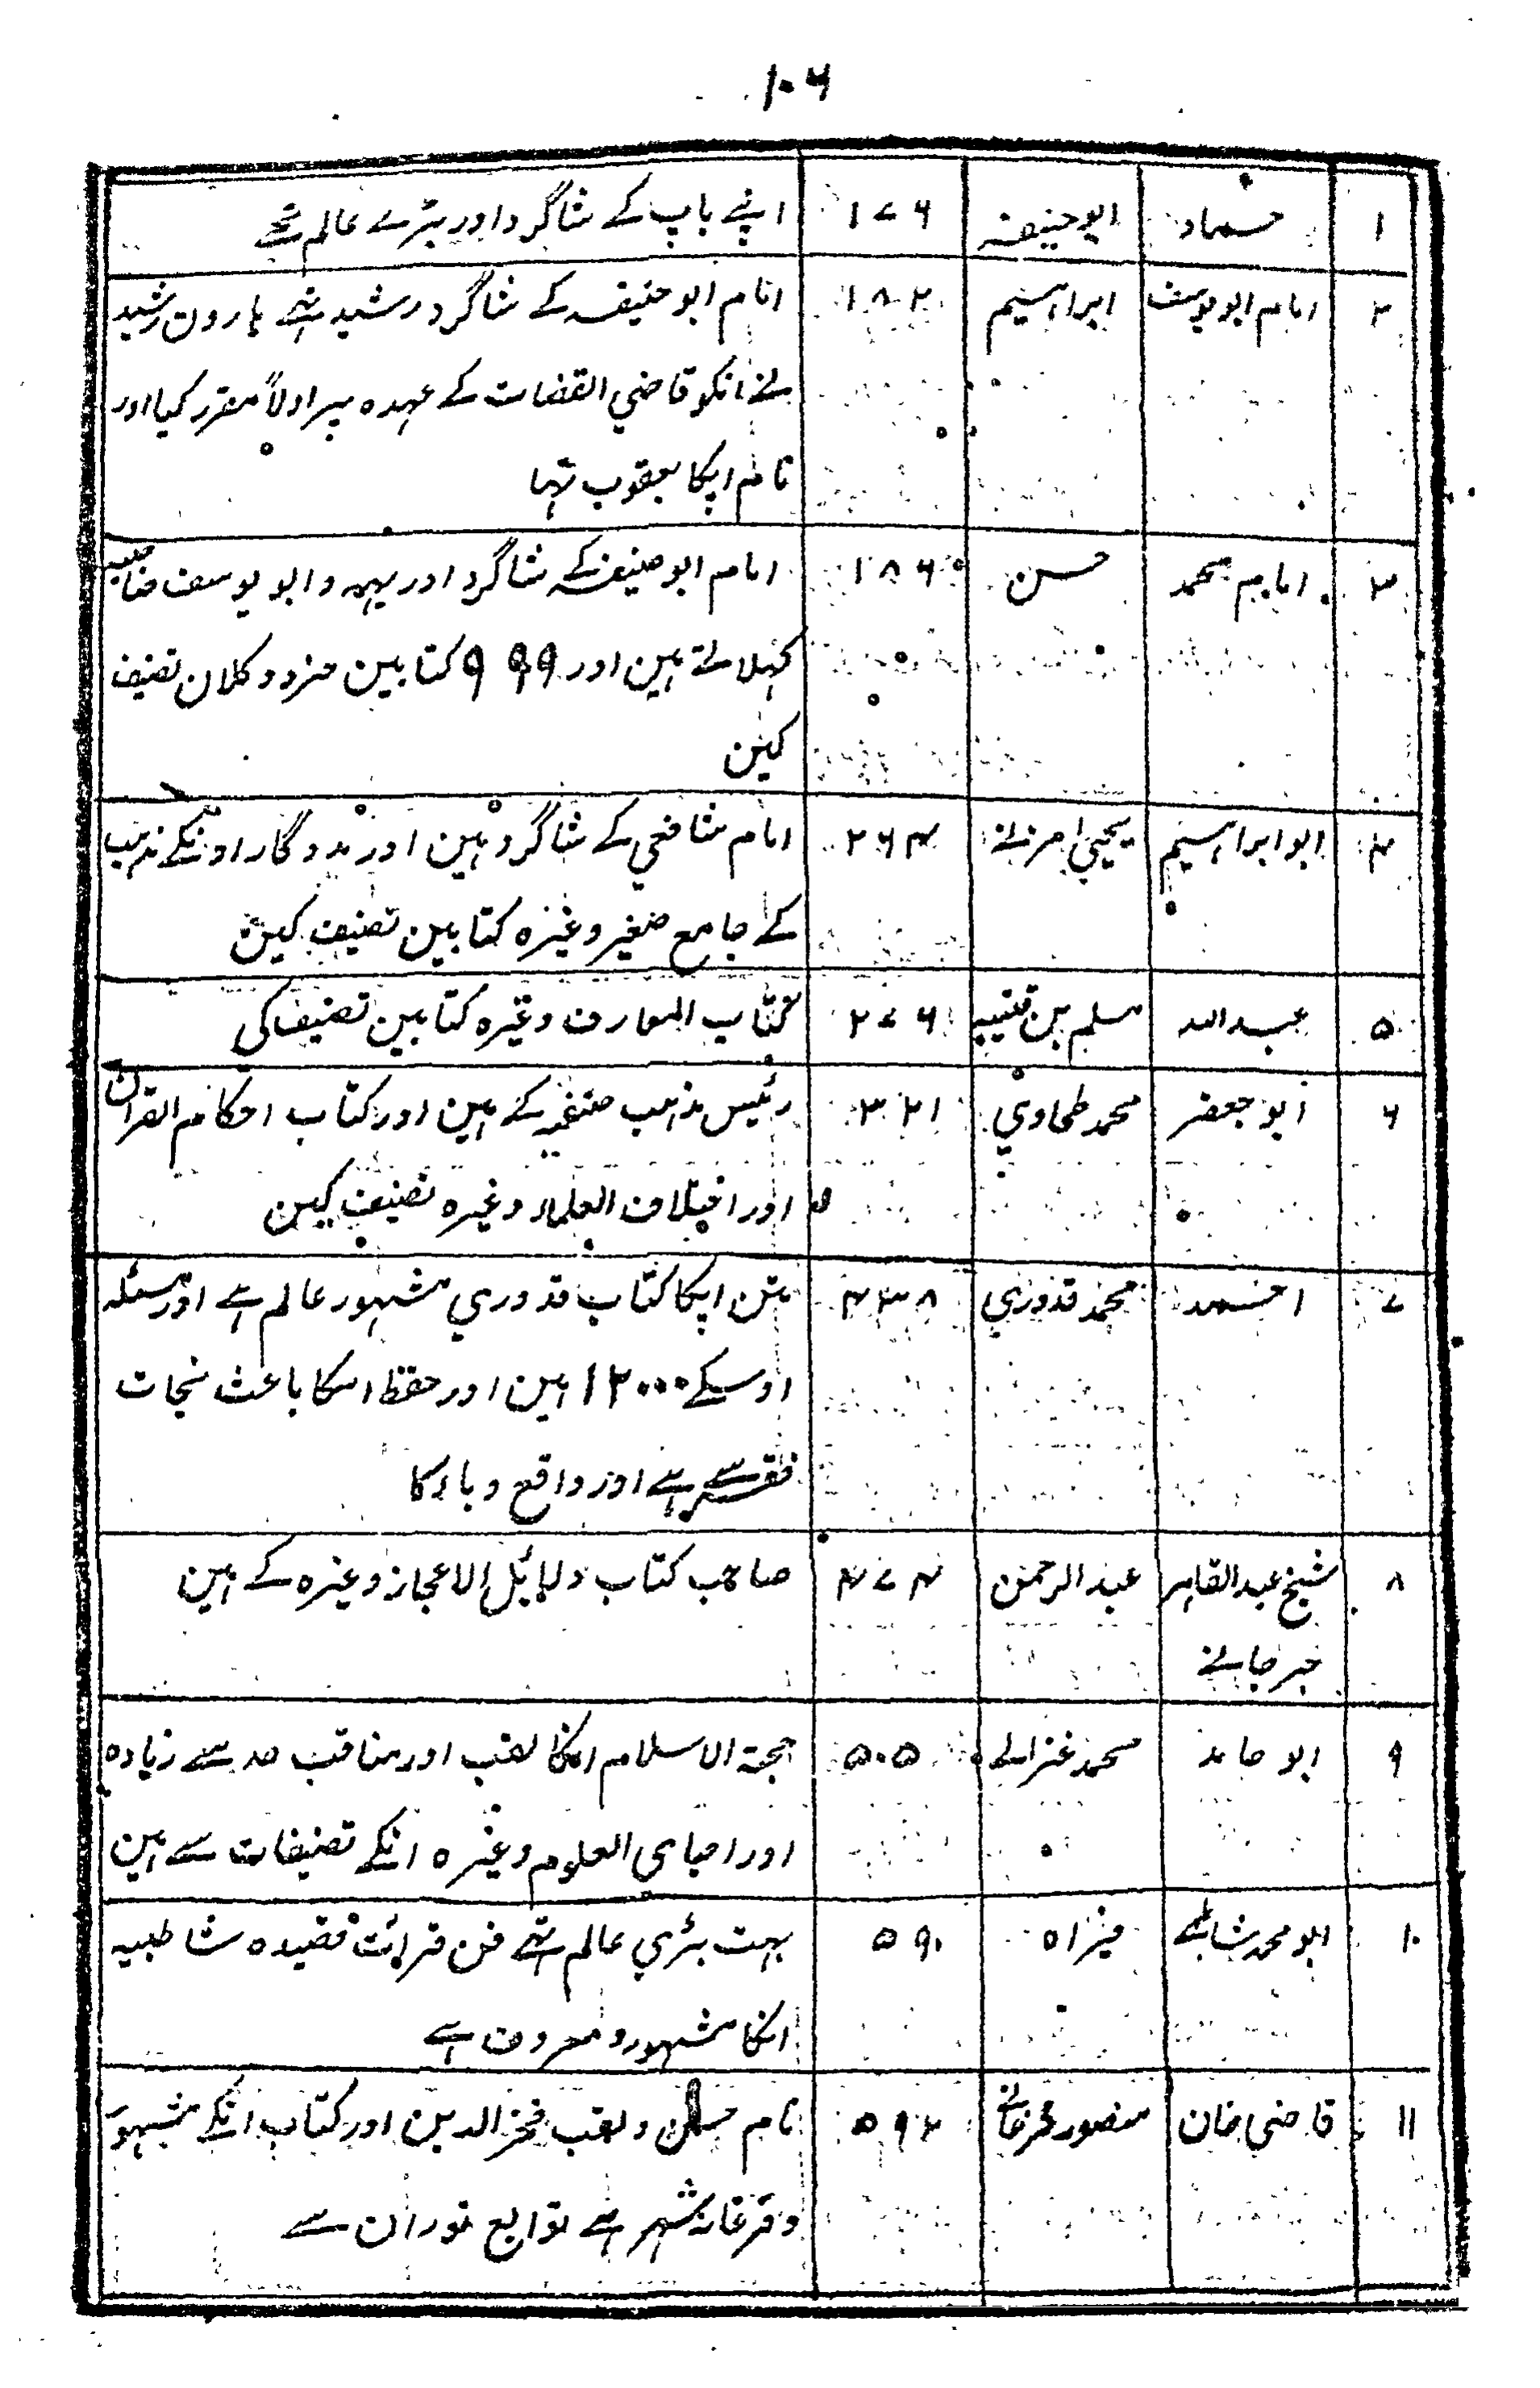 ۱۰۶
۱ حماد ابوحنیفہ ۱۷۶ اپنے باپ کے شاگرد اور بڑے عالم تھے
۲ امام ابویوسف ابراہیم ۱۸۲ امام ابوحنیفہ کے شاگرد رشید تھے ہارون رشید
نے انکو قاضي القضات کے عہدہ پر اولاً مقرر کیا اور
نام اپکا یعقوب تہا
۳ امام محمد حسن ۱۸۶ امام ابوحنیفہ کے شاگرد اور یہہ و ابو یوسف صاحبیہ
کہلاتے ہین اور ۹۹۹ کتابین خرد و کلان تصنیف
کین
۴ ابو ابراہیم یحیيٰ مزنے ۲۶۴ امام شافعي کے شاگرد ہین اور مددگار اونکے مذہب
کے جامع صغیر وغیرہ کتابین تصنیف کین
۵ عبداللہ مسلم بن قتیبہ ۲۷۶ کتاب المعارف وغیرہ کتابین تصنیف کی
۶ ابو جعفر محمد طحاوي ۳۲۱ رئیس مذہب حنفیہ کے ہین اور کتاب احکام القران
اور اختلاف العلماء وغیرہ تصنیف کین
۷ احمد محمد قدوري ۴۳۸ متن اپکا کتاب قدوري مشہور عالم ہے اور مسئلہ
اوسکے ۱۲۰۰۰ ہین اور حفظ اسکا باعث نجات
فقر سے ہے اور واقع وباء کا
۸ شیخ عبدالقاہر عبدالرحمن ۴۷۴ صاحب کتاب دلایٔل الاعجاز وغیرہ کے ہین
جرجانے
۹ ابو حامد محمد غزالے ۵۰۵ حجۃ الاسلام انکا لقب اور مناقب حد سے زیادہ
اور احیای العلوم وغیرہ انکے تصنیفات سے ہین
۱۰ ابو محمد شاطبے فیزاہ ۵۹۰ بہت بڑي عالم تھے فن قرائت قصیدہ شاطبیہ
انکا مشہور و معروف ہے
۱۱ قاضي خان منصور فرغانے ۵۹۲ نام حسن و لقب فخرالدین اور کتاب انکے مشہور
و فرغانہ شہر ہے توابع توران سے